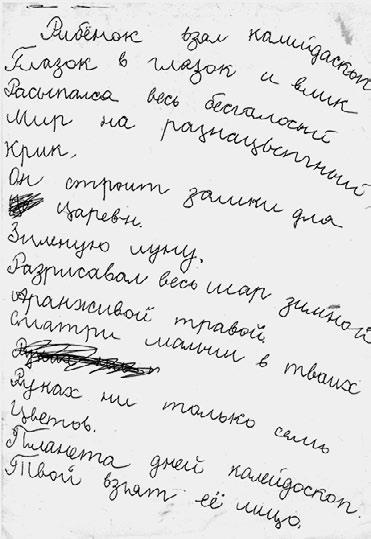 Рибёнок взал калийдаскоп
Глазок в глазок и влик
Расыпалса весь бесгалоский
Мир на разнацвепный
Крик.
Он строит залики для
царевн.
Зиленую луну.
Разрисавал весь шар зимной
Аранживой травой
Сматри малчи в тваих
Руках ни только семь
Цветов.
Планета дней калейдоскоп.
Твой взгят её лицо.